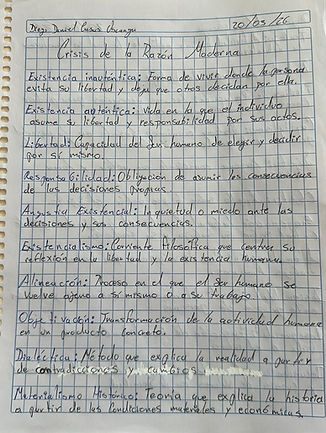 Diego Daniel 20/05/26
Crisis de la Razón Moderna
Existencia inauténtica: Forma de vivir donde la persona
evita su libertad y deja que otros decidan por ella.
Existencia auténtica: Vida en la que el individuo
asume su libertad y responsabilidad por sus actos.
Libertad: Capacidad del ser humano de elegir y decidir
por sí mismo.
Responsabilidad: Obligación de asumir las consecuencias
de las decisiones propias.
Angustia Existencial: Inquietud o miedo ante las
decisiones y sus consecuencias.
Existencialismo: Corriente filosófica que centra su
reflexión en la libertad y la existencia humana.
Alineación: Proceso en el que el ser humano se
vuelve ajeno a sí mismo o a su trabajo.
Objetivación: Transformación de la actividad humana
en un producto concreto.
Dialéctica: Método que explica la realidad a partir
de contradicciones y cambios
Materialismo Histórico: Teoría que explica la historia
a partir de las condiciones materiales y económicas.